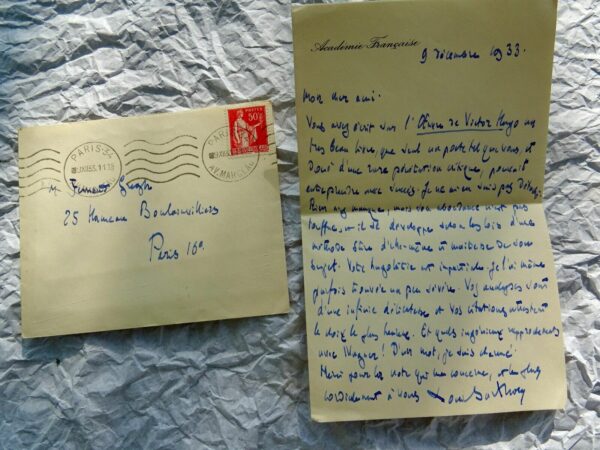 PARIS-34
POSTES
50c
PARIS
AV. MARCEAU
M. Fernand Gregh
25 Hameau Boulainvilliers
Paris 16e
Académie Française
9 décembre 1933.
Mon cher ami.
Vous avez écrit sur l'Œuvre de Victor Hugo un
très beau livre, que seul un poète tel que vous, et
doué d'une rare pénétration critique, pouvait
entreprendre avec succès. Je n'en suis pas
Rien n'y manque, mais son abondance n'est pas
touffue – il se développe selon les lois d'une
méthode sûre d'elle-même et maîtresse de son
sujet. Votre est impartiale. Je l'ai même
parfois trouvée un peu sévère. Vos analyses sont
d'une infinie délicatesse et vos citations attestent
le choix le plus heureux. Et quels ingénieux rapprochements
avec Wagner ! D'un mot, je suis charmé.
Merci pour la note qui me concerne, et bien
cordialement à vous Louis Barthou